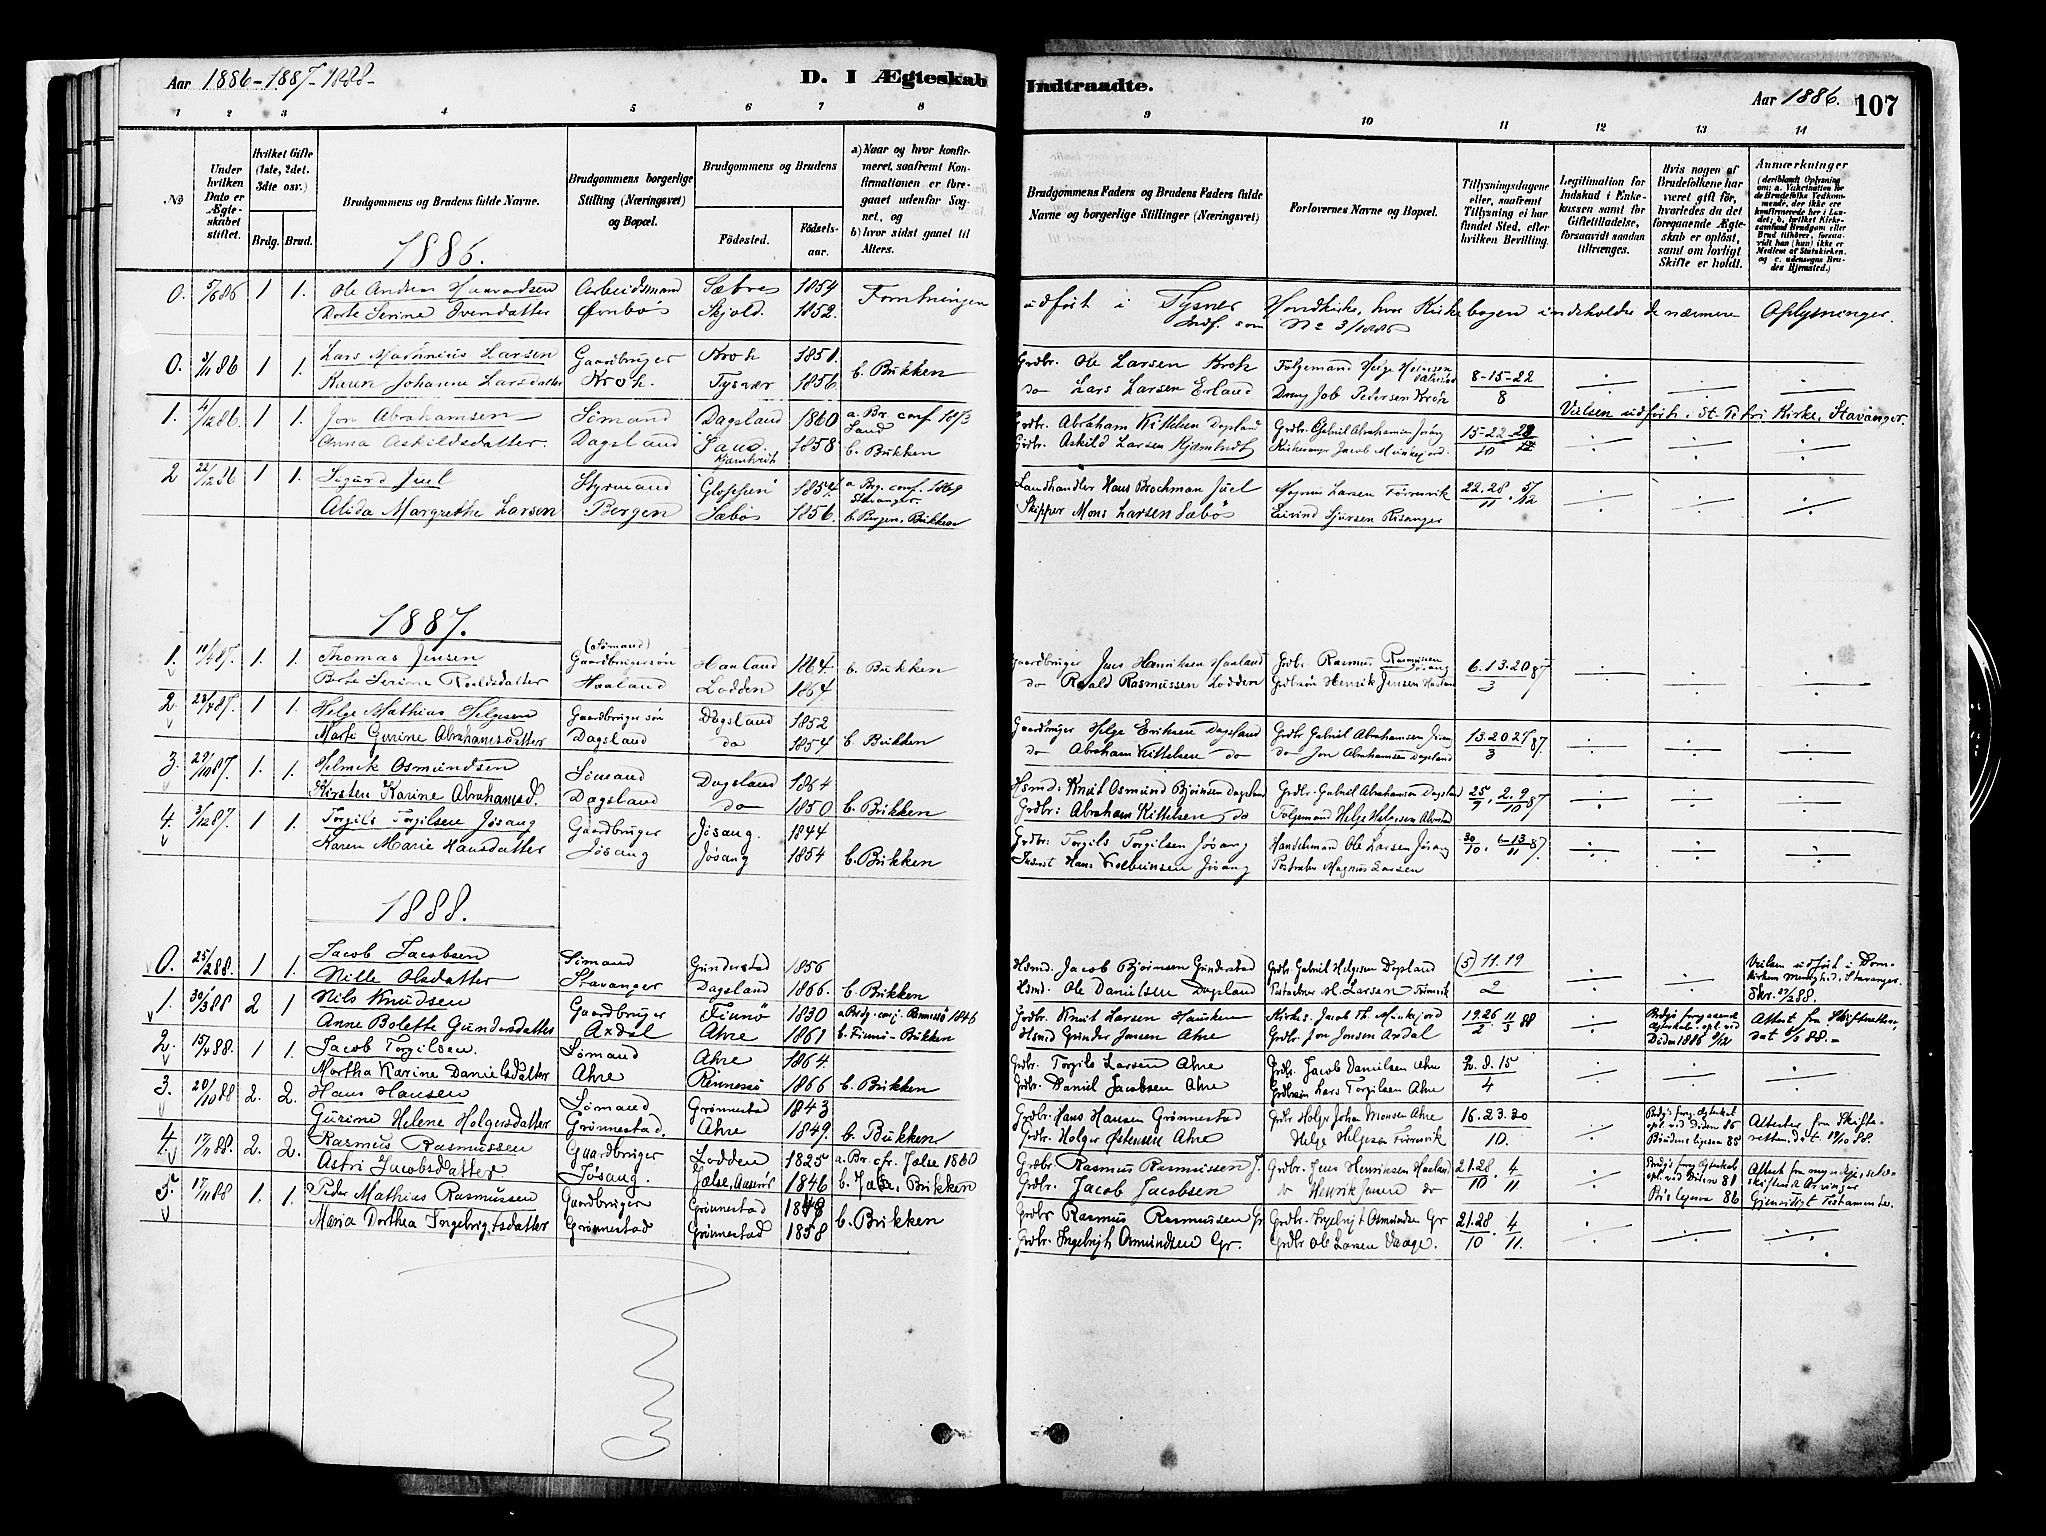 Aar 1886-1887-1888-
D. I Ægteskab Indtraadte.
Aar 1886. 107
1 2 3 4 5 6 7 8 9 10 11 12 13 14
No
Under hvilken Dato er Ægteskabet stiftet.
Hvilket Gifte (1ste, 2det. 3die osv.)
Brdg. Brud.
Brudgommens og Brudens fulde Navne.
Brudgommens borgerlige Stilling (Næringsvei) og Bopæl.
Brudgommens og Brudens
Födested.
Födselsaar.
a) Naar og hvor konfirmeret, saafremt Konfirmationen er foregaaet udenfor Sognet, og
b) hvor sidst gaaet til Alters.
Brudgommens Faders og Brudens Faders fulde Navne og borgerlige Stillinger (Næringsvei)
Forlovernes Navne og Bopæl.
Tillysningsdagene eller, saafremt Tillysning ei har fundet Sted, efter hvilken Bevilling.
Legitimation for Indskud i Enkekassen samt for Giftetilladelse, forsaavidt saadan tiltrænges.
Hvis nogen af Brudefolkene har været gift för, hvorledes da det foregaaende Ægteskab er oplöst, samt om lovligt Skifte er holdt.
Anmærkninger
1886.
0. 5/6 86 1 1. Ole Andreas Haavardsen Arbeidsmand Sæbø 1854 Forretningen udført i Tysvær Hovedkirke, hvor Kirkebogen indeholder de nærmere Oplysninger.
Dorte Serine Svendatter Ørnbø Skjold. 1852. Indf. som No 3/1886
0. 3/11 86 1 1. Lars Mathinius Larsen Gaardbruger Kroh 1851. b. Bukken Grdbr. Ole Larsen Kroh Følgemand Helge Helgesen 8-15-22
Karen Johanne Larsdatter Kroh. Tysvær 1856. do Lars Larsen Erland Dreng Job Pedersen Kroh 8
1. 4/12 86. 1 1. Jon Abrahamsen Sömand Dagsland 1860 a. Br. conf. Grdbr. Abraham Kittelsen Dagsland Grdbr. Gabriel Abrahamsen Jösang 15-22-28 Vielsen udført i St. Petri Kirke, Stavanger.
Anna Askildsdatter. Dagsland Sand. 1858 b. Bukken Grdbr. Askild Larsen Kjæmhedt Kirkesanger Jacob Munkejord. 10
2 22/12 86 1 1. Sigurd Juel Styrmand Gloppen 1854 a Brg. conf. 1869 Stavanger Landhandler Hans Brochman Juel Magnus Larsen Förrisvik 22.28 . 5/12
Alida Margrethe Larsen Bergen Sæbö 1856. b. Bergen, Bukken Skipper Mons Larsen Sæbö Eivind Sjursen Risanger 11
1887.
1. 11/4 87. 1. 1. Thomas Jensen (Sömand) Gaardbrugersön Haaland 1864. b. Bukken Gaardbruger Jens Henriksen Haaland Grdbr. Rasmus Rasmussen Jösang 6.13.20 87
Berte Serine Roaldsdatter Haaland Lodden 1864 do Roald Rasmussen Lodden Grdbrsön Henrik Jensen Haaland 3
2. 23/4 87. 1 1. Helge Mathias Helgesen Gaardbruger sön Dagsland 1852 Gaardbruger Helge Eriksen Dagsland Grdbr. Gabriel Abrahamsen Jösang 13.20 27 87.
Marte Gurine Abrahamsdatter Dagsland do 1854 b. Bukken do Abraham Kittelsen do do Jon Abrahamsen Dagsland 3
3. 29/10 87. 1. 1. Helmik Osmundsen Sömand Dagsland 1864 Hsmd. Knut Osmund Bjørnsen Dagsland Grdbr. Gabriel Abrahamsen Dagsland 25/9 . 2. 9/10 87
Kirsten Karine Abrahamsd. Dagsland do 1850 b. Bukken Grdbr: Abraham Kittelsen, do Følgemand Helge Helgesen
4. 3/12 87. 1 1. Torgils Torgilsen Jösang Gaardbruger Jösang. 1844 Grdbr: Torgils Torgilsen Jösang Handelsmand Ole Larsen Jösang 30/10 . 6-13/11 87.
Karen Marie Hansdatter Jösang Jösang 1854 b. Bukken Hans Jösang Magnus Larsen
1888.
0. 25/2 88. 1 1. Jacob Jacobsen Sömand Gunderstad 1856 Hsmd. Jacob Bjørnsen Gunderstad Grdbr. Gabriel Helgesen Dagsland (5) 11.19 Vielsen udført i Domkirkens Menighed, Stavanger.
Nille Olsdatter Stavanger Dagsland 1866. b. Bukken Hsmd. Ole Danielsen Dagsland M. Larsen Förrisvik 2 Skr. 27/2 88.
1. 30/3 88 2 1 Nils Knudsen Gaardbruger Finnö 1830 a Brdg. conf. Rennesö 1846 Grdbr. Knut Larsen Hauskeen Kirkes. Jacob Th. Munkejord 19.26/2 . 11/3 88 Brdgs foregaaende Ægteskab opl. ved Döden 1886 Attest fra Skifteretten,
Anne Bolette Gundersdatter Axdal Ahre 1861 b. Finnö-Bukken Hsmd Gunder Jensen Ahre Grdbr. Jon Jonsen Axdal dat 88.-
2. 15/4 88. 1 1. Jacob Torgilsen. Sömand Ahre 1864. Grdbr. Torgils Larsen Ahre Grdbr. Jacob Danielsen Ahre 2. 8. 15
Martha Karine Danielsdatter Ahre Rennesö 1866 b. Bukken Grdbr. Daniel Jacobsen Ahre Grdbrsön Lars Torgilsen Ahre 4
3. 20/10 88 2. 2. Hans Hansen Sömand Grönnestad 1843 Grdbr. Hans Hansen Grönnestad Grdbr Holger Johan Monsen Ahre 16.23.30 Brdgs forrg. Ægteskab opl. ved Döden 86 Attester fra Skifteretten, dat. 19/10 88.
Gurine Helene Holgersdatter Grönnestad. Ahre 1849. b. Bukken Grdbr. Holger Østensen Ahre Helge Helgesen Förrisvik 10. Brudens ligesaa 85
4. 17/11 88. 2. 2. Rasmus Rasmussen Gaardbruger Lodden 1825 a. Br. cfr. Jelse 1860 Grdbr. Rasmus Rasmussen J. Grdbr. Jens Henriksen Haaland 21.28/10 . 4/11 Brdgs forrg. Ægteskab opl. ved Döden 81
Astri Jacobsdatter Jösang. Jelse, 1846 b. Jelse, Bukken Grdbr. Jacob Jacobsen do Henrik Jensen do Brs ligesaa 86 Gjensidigt Testamente.
5. 17/11 88 1. 1. Peder Mathias Rasmussen Gaardbruger Grönnestad 1848 Grdbr Rasmus Rasmussen Gr Grdbr. Ingebrigt Osmundsen Gr 21.28 . 4
Maria Dorthea Ingebrigtsdatter Grönnestad Grönnestad 1858 b. Bukken Grdbr. Ingebrigt Osmundsen Gr. Grdbr Ole Larsen Vaage. 10 11.